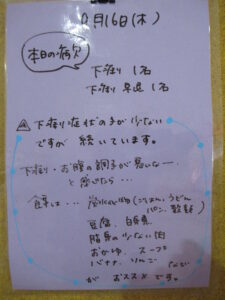 月16日(木)
本日の病欠
下痢り 1名
下痢り 早退 1名
⚠ 下痢り症状の子が少ない
ですが 続いています。
下痢り・お腹の調子が悪いなー
と感じたら…
食事は… 炭水化物(ごはん、うどん
パン、軟飯)
豆腐、白身魚
脂身の少ない肉
おかゆ、スープ
バナナ、りんご など
が おススメ です。